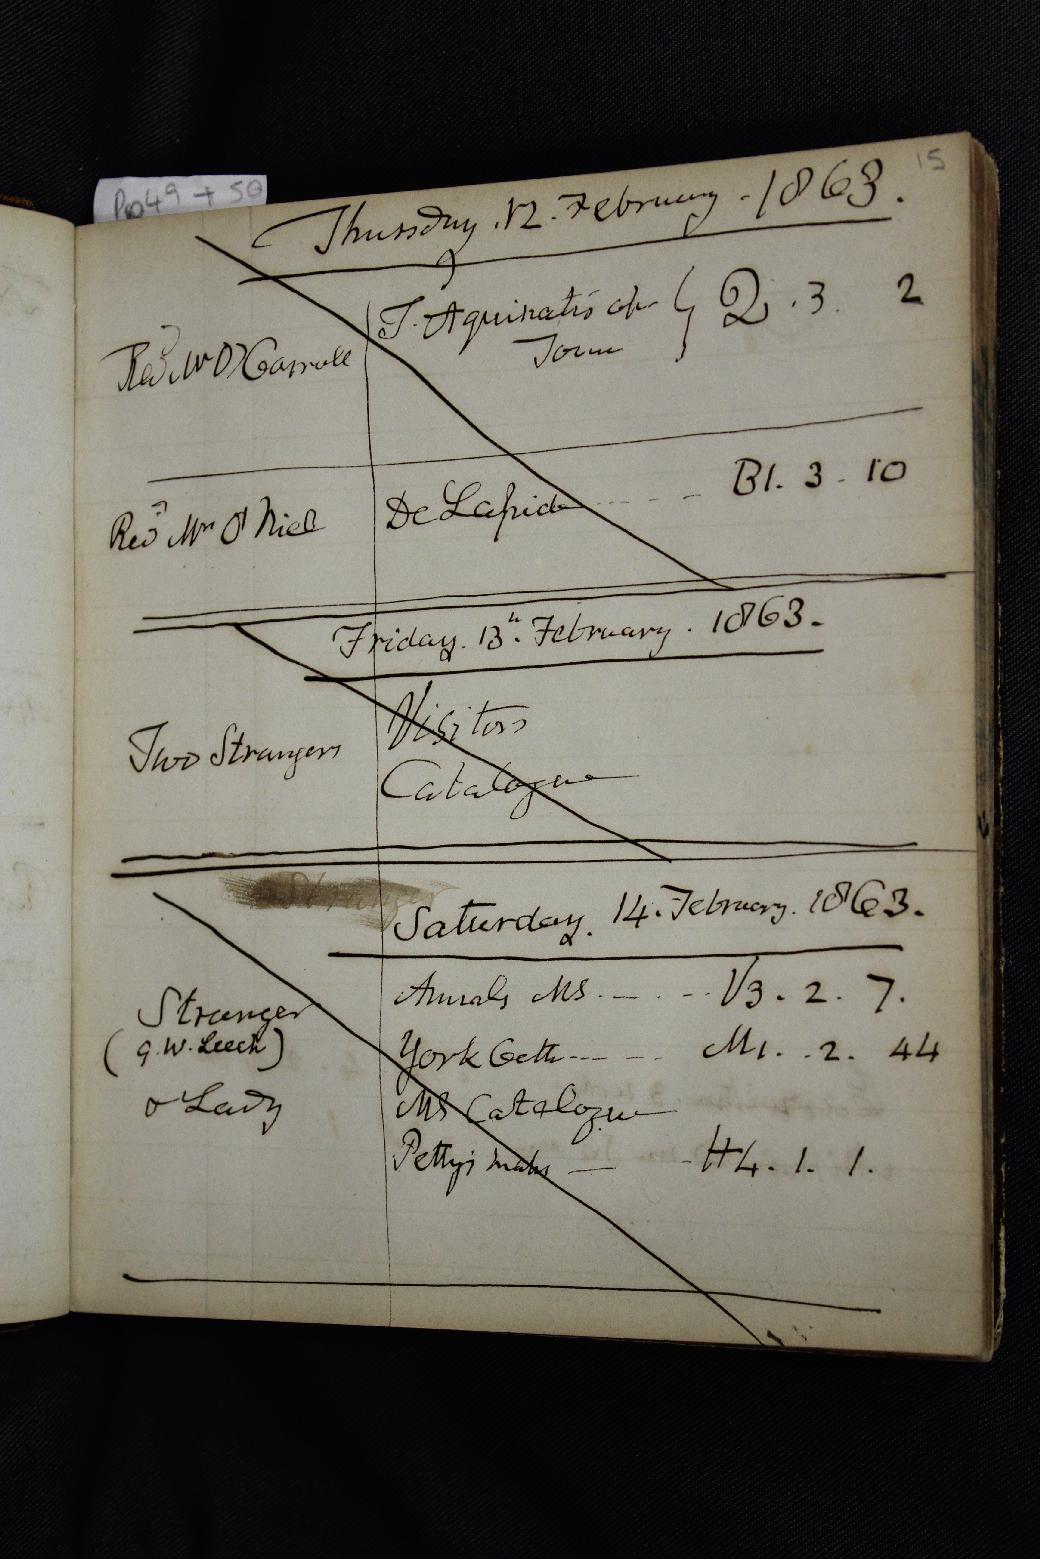 Pp 49 + 50
15
Thursday. 12. February. 1863.
Revd Mr O'Carroll
T. Aquinatis
Q. 3. 2
Revd Mr O'Niel
De Lapide - - - - B1. 3. 10
Friday. 13th. February. 1863.
Two Strangers
Visitors
Catalogue
Saturday. 14. February. 1863.
Stranger
(G. W. Leech)
o Lady
Annals MS. - - - V3. 2. 7.
York - - - M1. 2. 44
MS Catalogue
Petty's Maps - - H4. 1. 1.